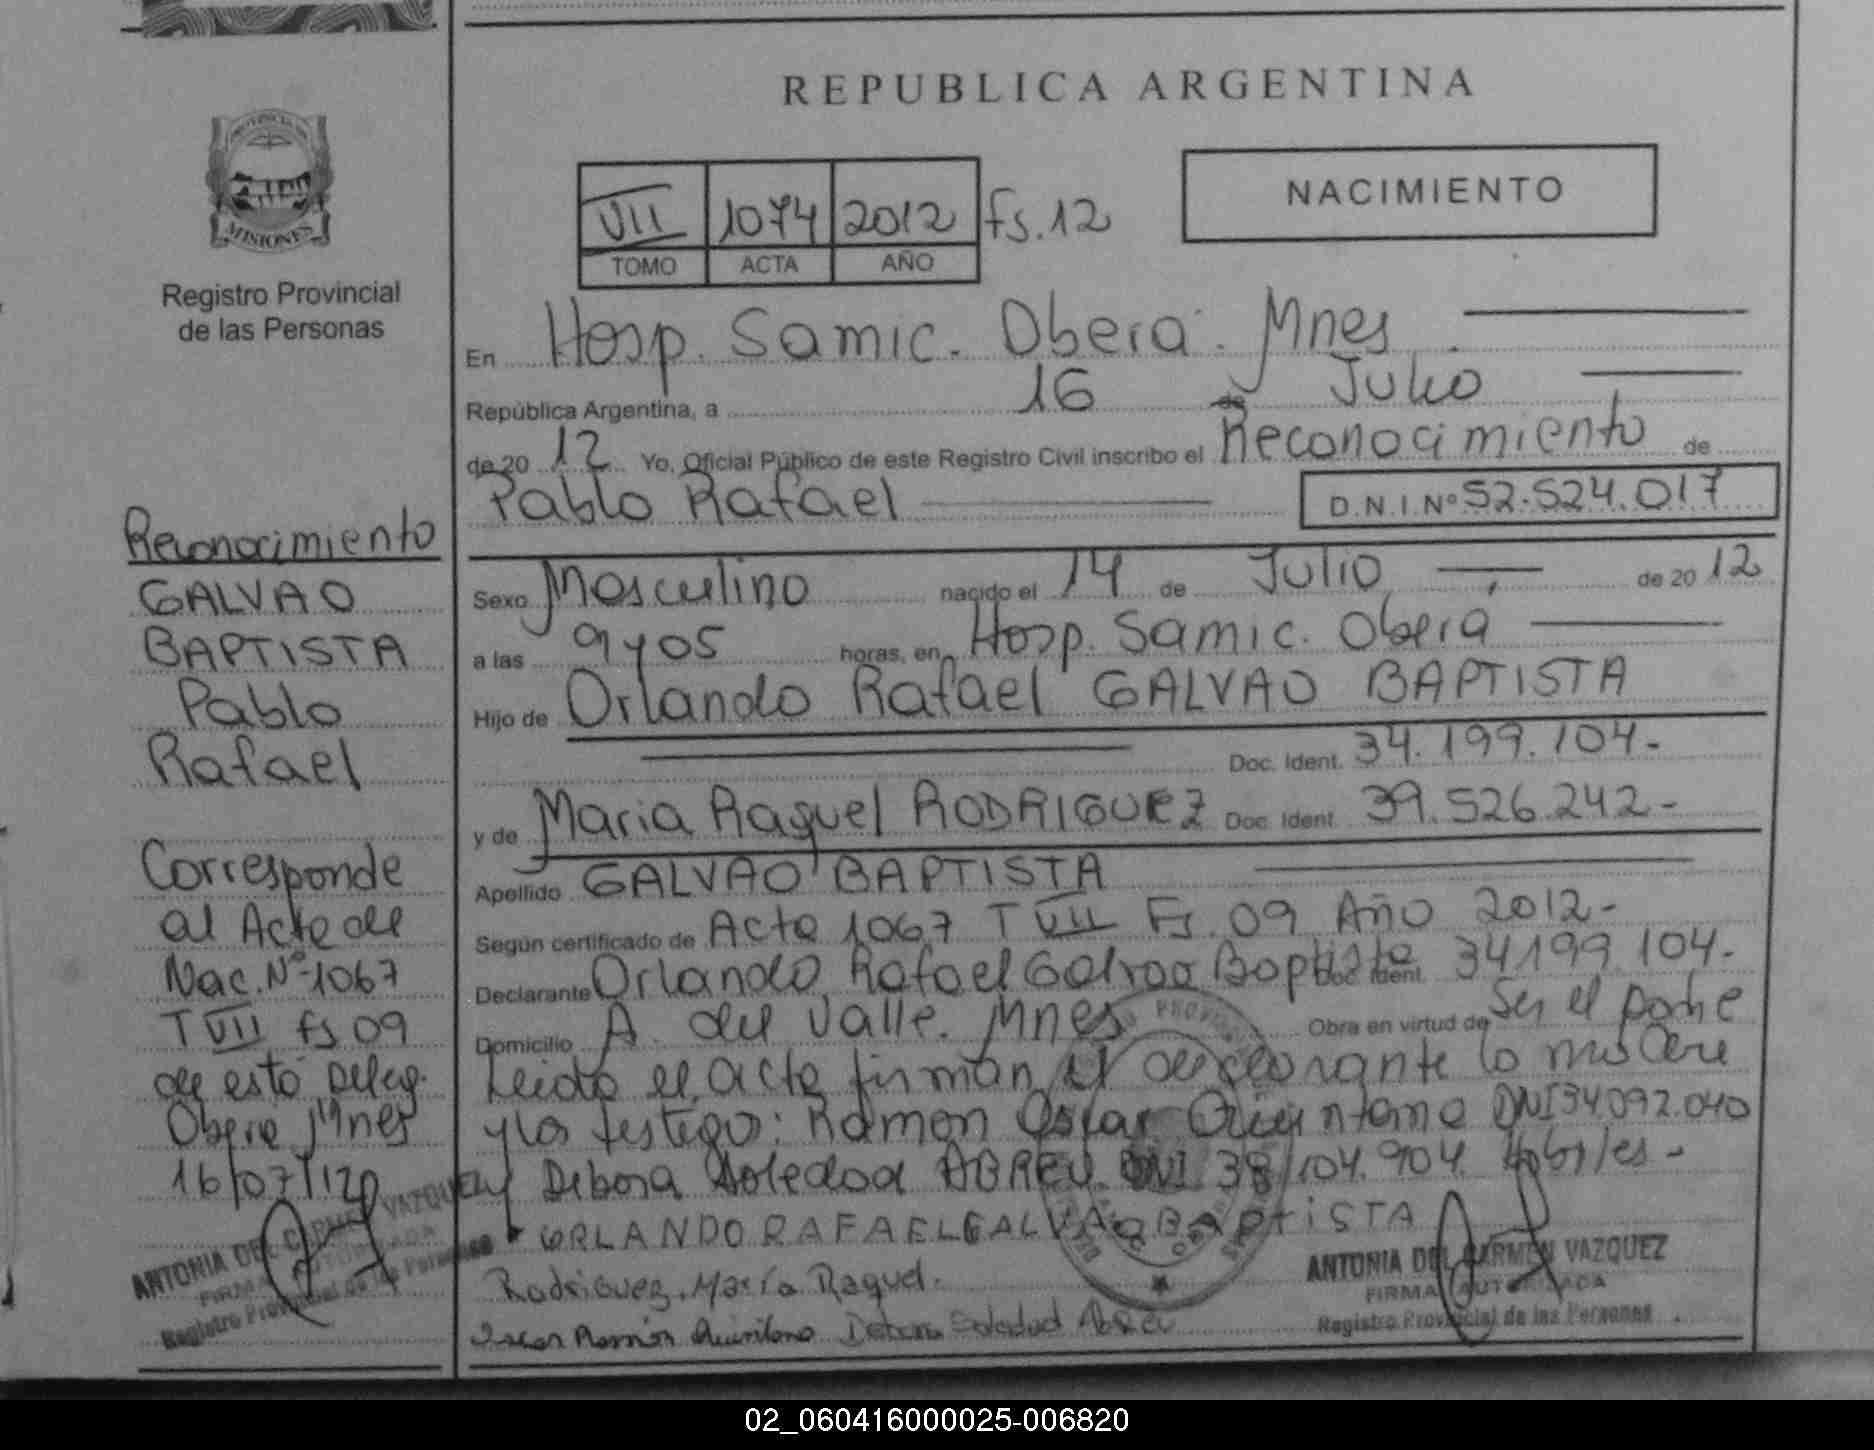 REPUBLICA ARGENTINA
PROVINCIA DE
MISIONES
Registro Provincial
de las Personas
VII 1074 2012 fs.12
TOMO ACTA AÑO
NACIMIENTO
En Hosp. Samic. Oberá. Mnes
República Argentina, a 16 de Julio
de 20 12 Yo, Oficial Público de este Registro Civil inscribo el Reconocimiento de
Pablo Rafael D.N.I.Nº 52.524.017
Sexo Masculino nacido el 14 de Julio de 20 12
a las 9 y 05 horas, en Hosp. Samic. Oberá
Hijo de Orlando Rafael GALVAO BAPTISTA
Doc. Ident. 34.199.104.-
y de Maria Raquel RODRIGUEZ Doc. Ident. 39.526.242-
Apellido GALVAO BAPTISTA
Según certificado de Acta 1067 T VII Fs. 09 Año 2012-
Declarante Orlando Rafael Galvao Baptista Doc. Ident. 34199.104-
Domicilio A. del Valle. Mnes Obra en virtud de Ser el padre
Leida el acta firman el declarante la madre
y los testigos: Ramon Oscar Quintana DNI 34.092.040
y Debora Soledad ABREU. DNI 38.104.904. Habiles-
ORLANDO RAFAEL GALVAO BAPTISTA
Rodriguez, María Raquel.
Oscar Ramón Quintana Debora Soledad Abreu
ANTONIA DEL CARMEN VAZQUEZ
FIRMA AUTORIZADA
Registro Provincial de las Personas
Reconocimiento
GALVAO
BAPTISTA
Pablo
Rafael
Corresponde
al Acta de
Nac. Nº 1067
T VII fs 09
de esta Deleg.
Oberá Mnes
16/07/12
ANTONIA DEL CARMEN VAZQUEZ
FIRMA AUTORIZADA
Registro Provincial de las Personas
02_060416000025-006820